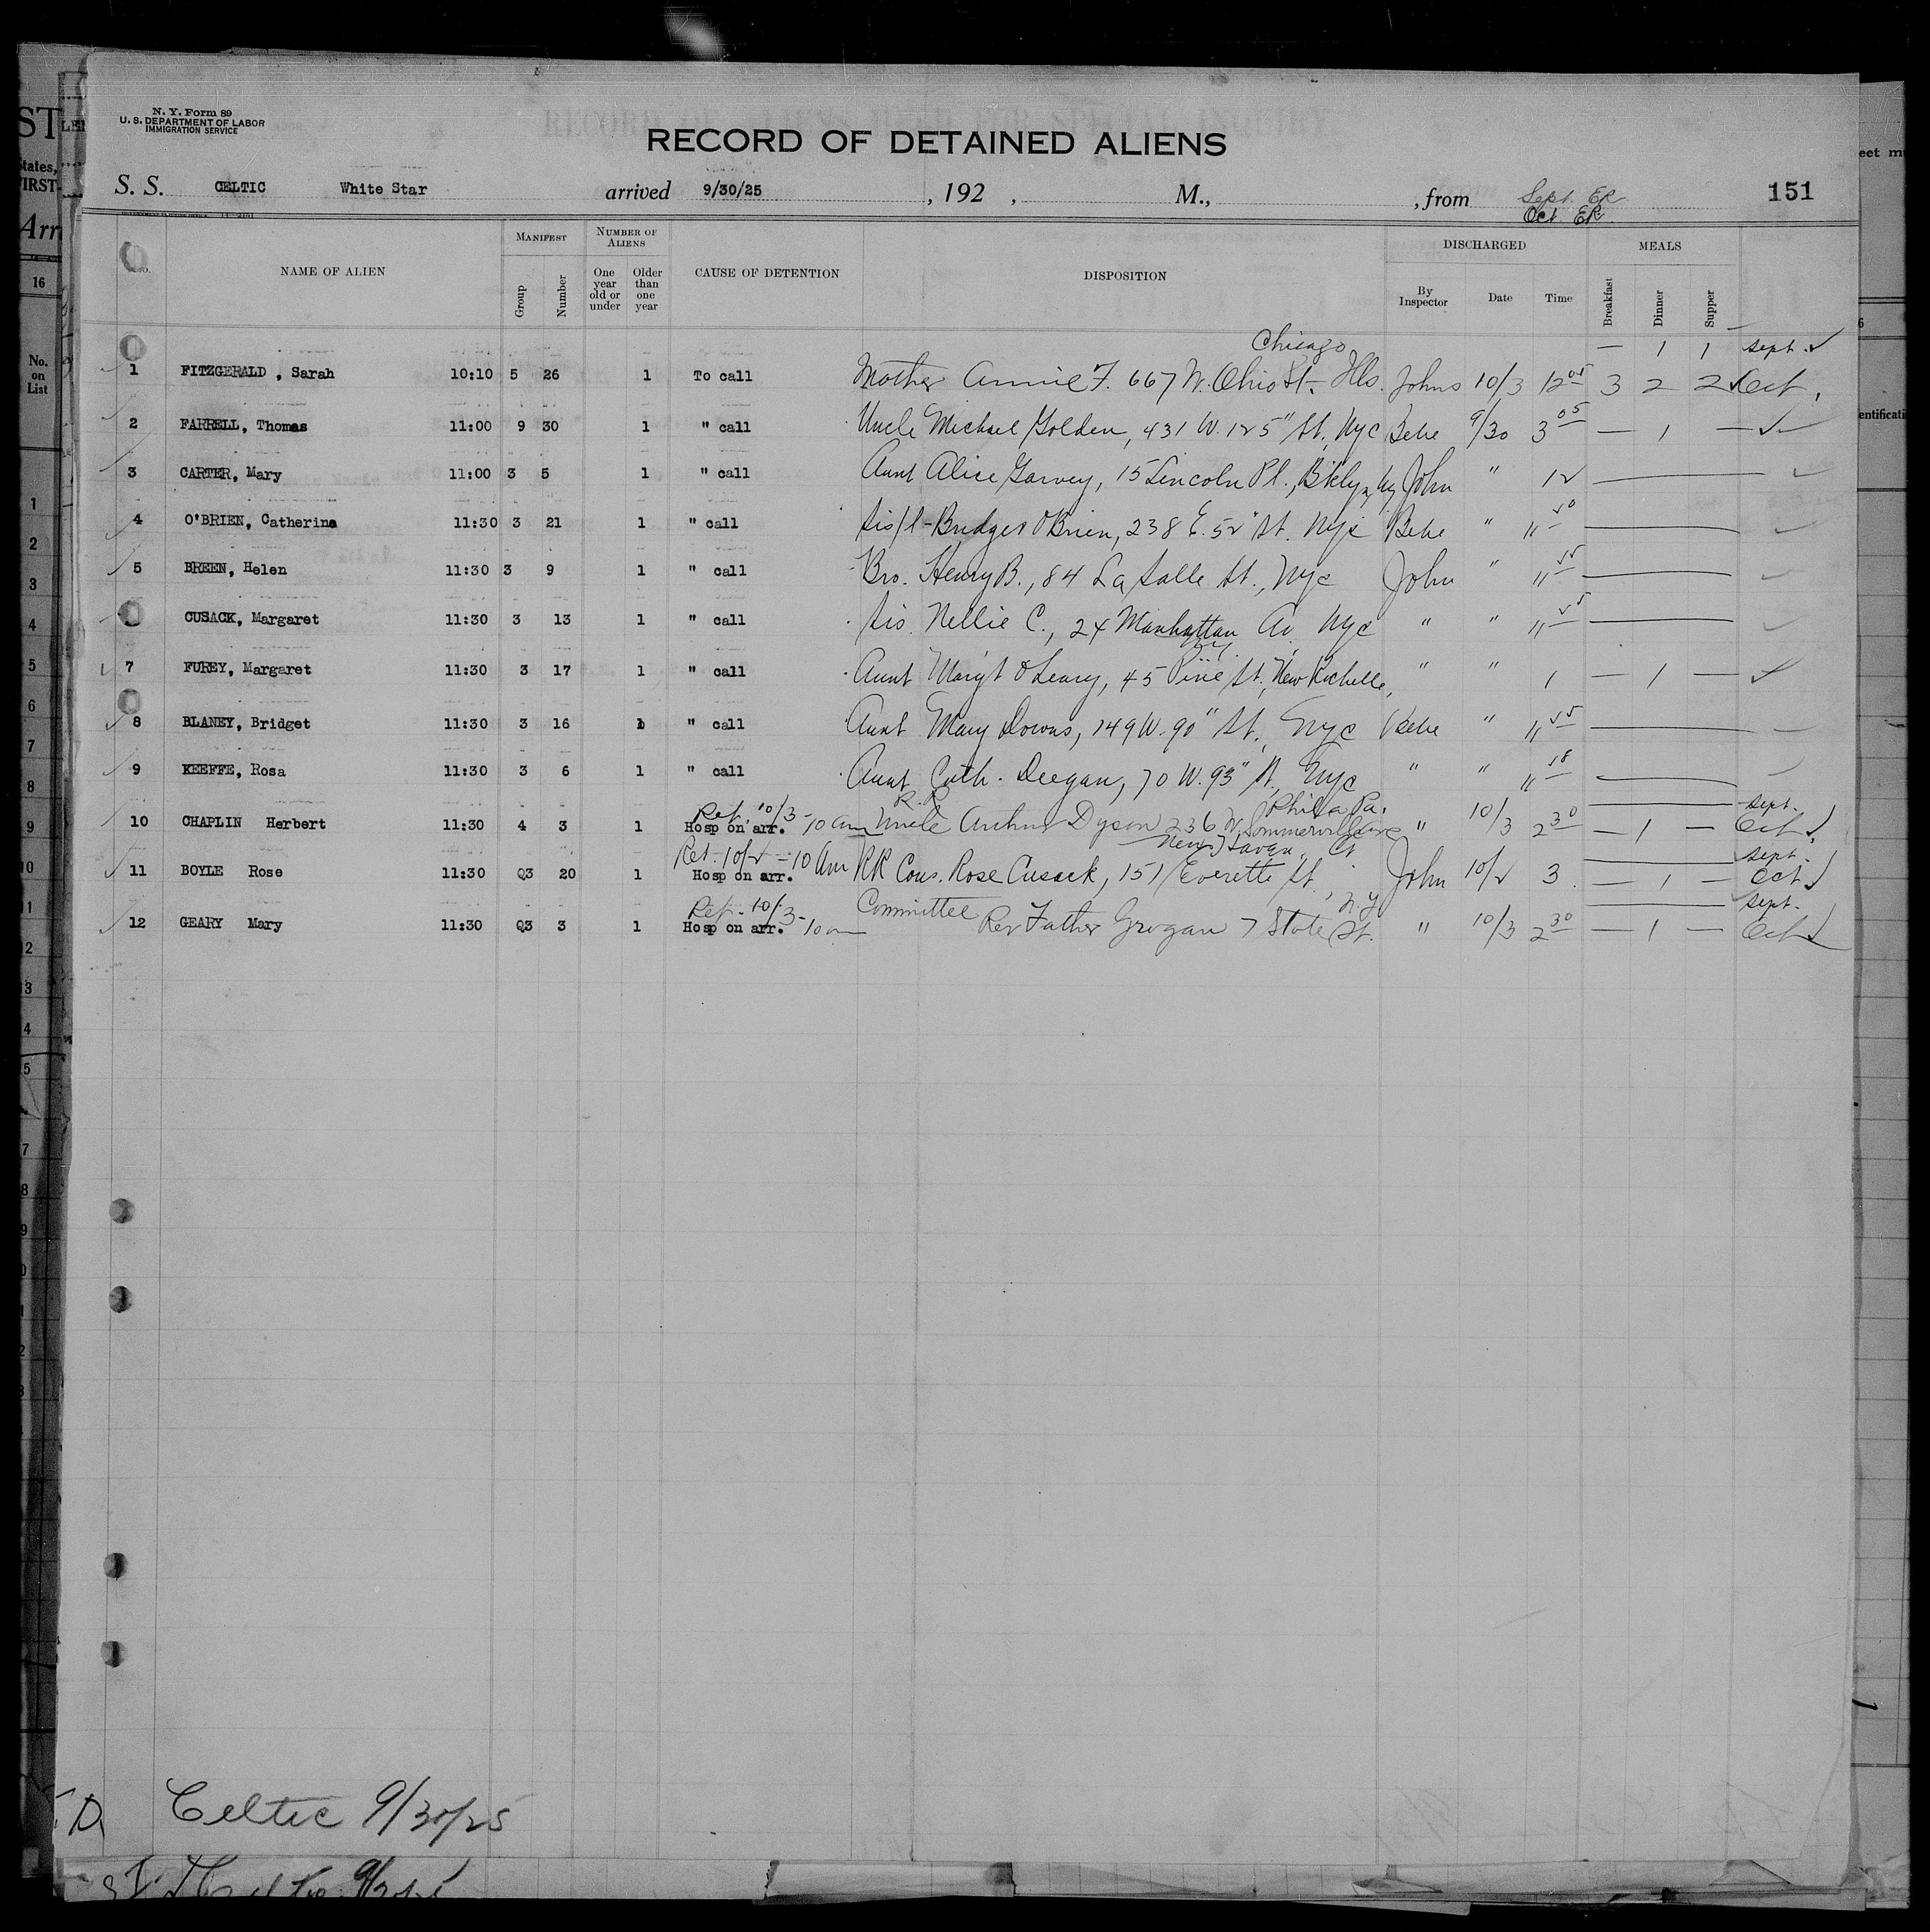 N. Y. Form 89
U. S. DEPARTMENT OF LABOR
IMMIGRATION SERVICE
RECORD OF DETAINED ALIENS
S. S. CELTIC White Star arrived 9/30/25 , 192 , M., , from Sept. ER 151
Oct ER
No. NAME OF ALIEN MANIFEST Group Number NUMBER OF ALIENS One year old or under Older than one year CAUSE OF DETENTION DISPOSITION DISCHARGED By Inspector Date Time MEALS Breakfast Dinner Supper
Chicago — 1 1 Sept. ✓
1 FITZGERALD , Sarah 10:10 5 26 1 To call Mother Annie F. 667 W. Ohio St. Ills. Johns 10/3 12 05 3 2 2 ✓ Oct.
2 FARRELL, Thomas 11:00 9 30 1 " call Uncle Michael Golden, 431 W. 125" St. NYC Bebe 9/30 3 05 — 1 — ✓
3 CARTER, Mary 11:00 3 5 1 " call Aunt Alice Garvey, 15 Lincoln Pl., Bklyn, Ny John " 12 ✓
4 O'BRIEN, Catherine 11:30 3 21 1 " call Sis/l - Bridget O'Brien, 238 E. 52" St. Nyc Bebe " " 20 ✓
5 BREEN, Helen 11:30 3 9 1 " call Bro. Henry B., 84 La Salle St., Nyc John " " ✓
CUSACK, Margaret 11:30 3 13 1 " call Sis. Nellie C., 24 Manhattan Av. Nyc " " " ✓
NY.
7 FUREY, Margaret 11:30 3 17 1 " call Aunt Marg't O'Leary, 45 Pine St., New Rochelle, " " 1 — 1 — ✓
8 BLANEY, Bridget 11:30 3 16 1 " call Aunt Mary Downs, 149 W. 90" St., Nyc Bebe " " ✓
9 KEEFFE, Rosa 11:30 3 6 1 " call Aunt Cath. Deegan, 70 W. 93" St, Nyc " " " 18 ✓
Ret. 10/3 - 10 am R.R. Phila Pa. Sept.
10 CHAPLIN Herbert 11:30 4 3 1 Hosp on arr. Uncle Arthur Dyson 236 W. Sommerville Ave " 10/3 2 30 — 1 — Oct ✓
Ret. 10/2 - 10 am New Haven, Ct Sept.
11 BOYLE Rose 11:30 Q3 20 1 Hosp on arr. RR Cous. Rose Cusack, 151 Everette St. John 10/2 3 — 1 — Oct ✓
Ret. 10/3 - 10 am Committee N.Y. Sept.
12 GEARY Mary 11:30 Q3 3 1 Hosp on arr. Rev Father Grogan 7 State St. " 10/3 2 30 — 1 — Oct ✓
D Celtic 9/30/25